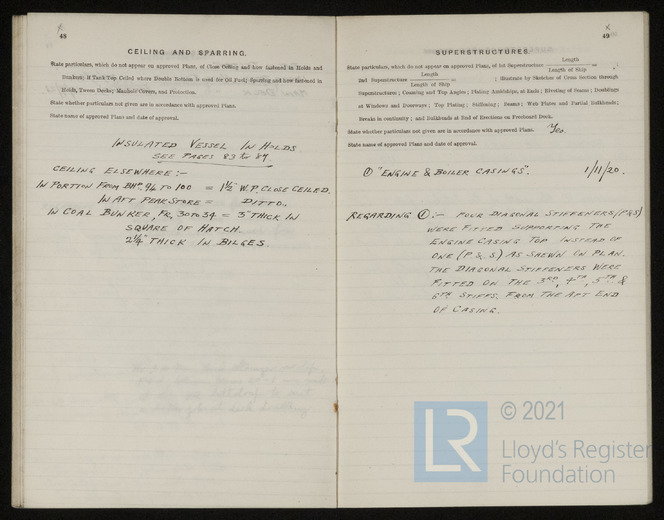 48
CEILING AND SPARRING.
State particulars, which do not appear on approved Plans, of Close Ceiling and how fastened in Holds and
Bunkers; if Tank Top Ceiled where Double Bottom is used for Oil Fuel; Sparring and how fastened in
Holds, Tween Decks; Manhole Covers, and Protection.
State whether particulars not given are in accordance with approved Plans.
State name of approved Plans and date of approval.
INSULATED VESSEL IN HOLDS
SEE PAGES 83 to 87.
CEILING ELSEWHERE :-
IN PORTION FROM BHD 96 TO 100 = 1½" W.P. CLOSE CEILED.
IN AFT PEAK STORE = DITTO.,
IN COAL BUNKER, FR, 30 TO 34 = 3" THICK IN
SQUARE OF HATCH.
2¼" THICK IN BILGES.
49
SUPERSTRUCTURES.
State particulars, which do not appear on approved Plans, of 1st Superstructure Length / Length of Ship = ;
2nd Superstructure Length / Length of Ship = ; Illustrate by Sketches of Cross Section through
Superstructures; Coaming and Top Angles; Plating Amidships, at Ends; Riveting of Seams; Doublings
at Windows and Doorways; Top Plating; Stiffening; Beams; Web Plates and Partial Bulkheads;
Breaks in continuity; and Bulkheads at End of Erections on Freeboard Deck.
State whether particulars not given are in accordance with approved Plans. Yes.
State name of approved Plans and date of approval.
① "ENGINE & BOILER CASINGS". 1/11/20.
REGARDING ① :- FOUR DIAGONAL STIFFENERS (P&S)
WERE FITTED SUPPORTING THE
ENGINE CASING TOP INSTEAD OF
ONE (P. & S) AS SHEWN ON PLAN.
THE DIAGONAL STIFFENERS WERE
FITTED ON THE 3RD, 4TH, 5TH &
6TH STIFFS. FROM THE AFT END
OF CASING.
LR
© 2021
Lloyd's Register
Foundation